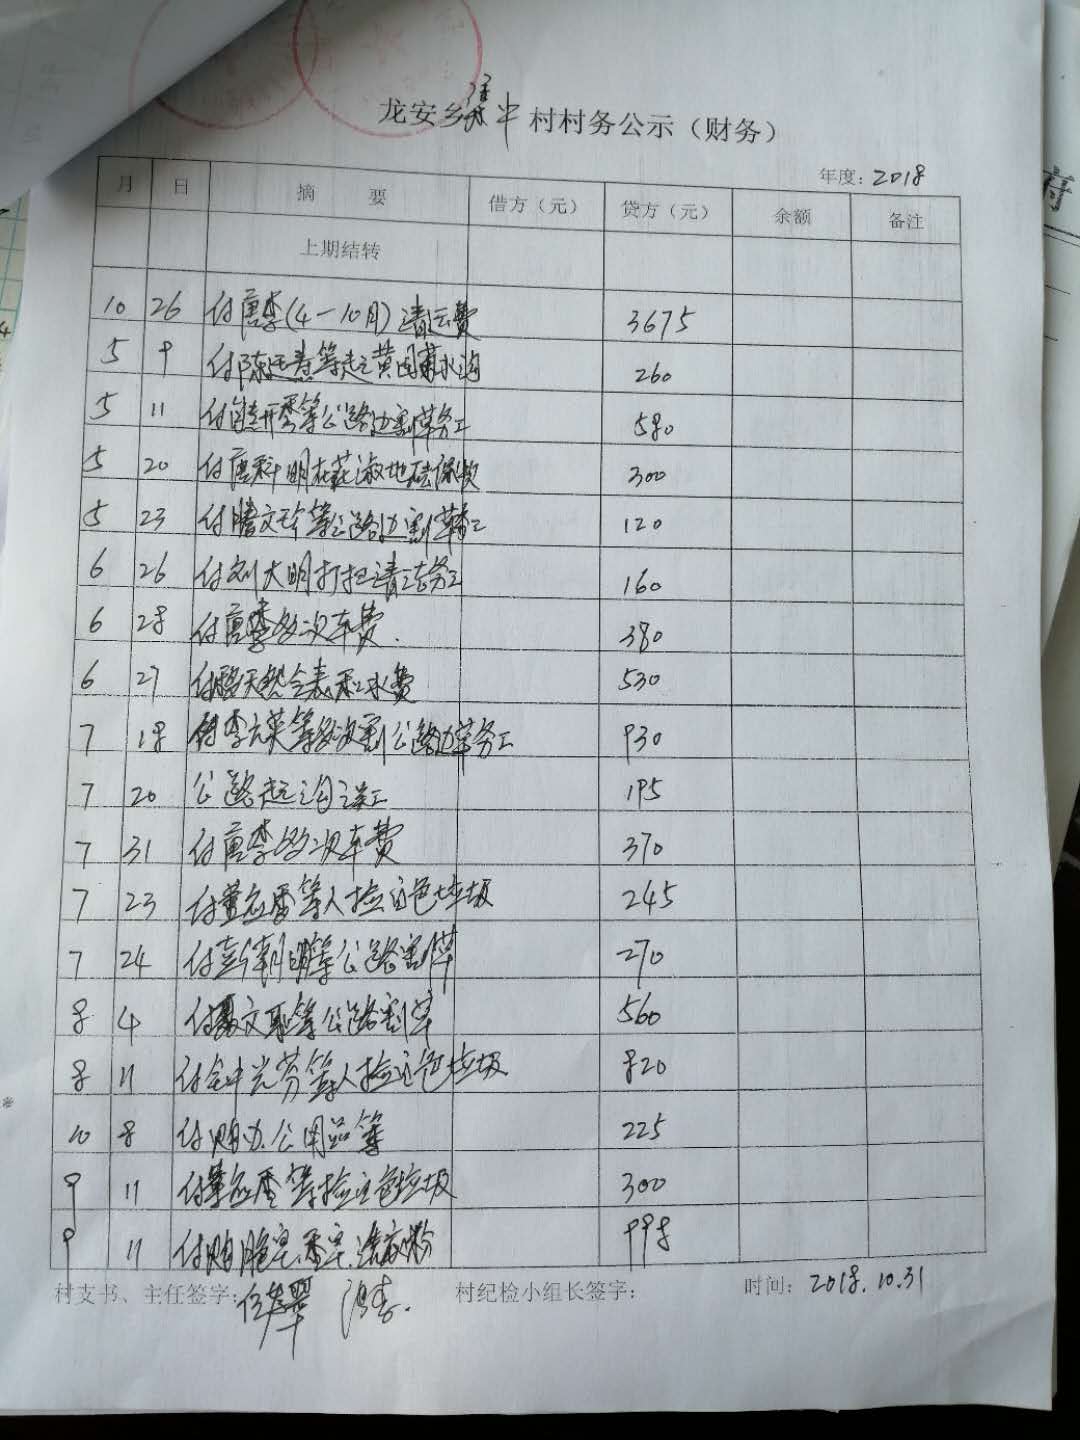 龙安乡 中村村务公示（财务）
年度：2018
月 日 摘 要 借方（元） 贷方（元） 余额 备注
上期结转
10 26 付唐李(4—10月)清运费 3675
5 9 付陈 等 黄 水沟 260
5 11 付 开秀等公路边割草务工 580
5 20 付唐科明 300
5 23 付 文 等公路边割草务工 120
6 26 付刘大明打扫清洁务工 160
6 28 付唐李多次车费. 380
6 27 付 水费 530
7 18 付李 英等多次割公路边草务工 930
7 20 公路 沟 195
7 31 付唐李多次车费 370
7 23 付董应香等人捡白色垃圾 245
7 24 付 朝明等公路割草 270
8 4 付 文 等公路割草 560
8 11 付钟光芬等人捡白色垃圾 820
10 8 付购办公用品等 225
9 11 付董应香等捡白色垃圾 300
9 11 付购肥皂.香皂.洗衣粉 998
村支书、主任签字： 村纪检小组长签字： 时间：2018.10.31